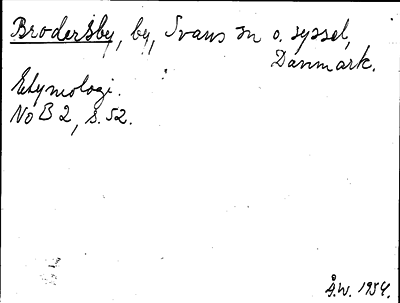 Brodersby, by, Svans sn o. syssel,
Danmark.
Etymologi.
No B 2, s. 52.
Å.W. 1954.